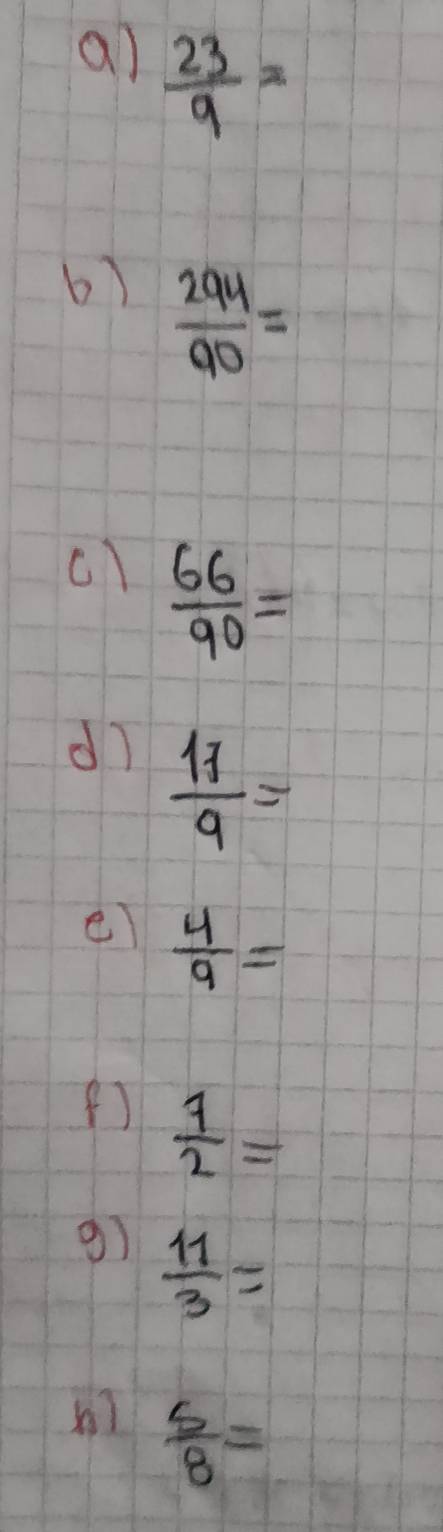 a) 23/9 =
b) 294/90 =
c) 66/90 =
d) 17/9 =
e) 4/9 =
f) 7/2 =
g) 11/3 =
h) 5/8 =